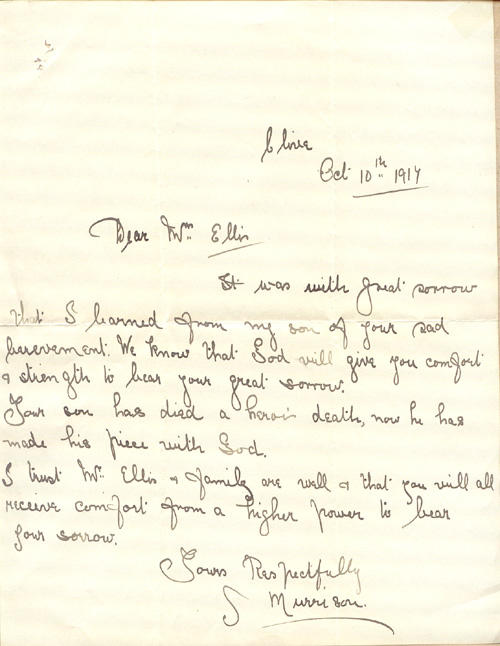 Clive
Oct 10th 1917
Dear Mrs Ellis
It was with great sorrow
that I learned from my son of your sad
berevement. We know that God will give you comfort
& strength to bear your great sorrow.
Your son has died a herois death, now he has
made his piece with God.
I trust Mr Ellis & family are well & that you will all
receive comfort from a higher power to bear
your sorrow.
Yours Respectfully
J Murrison.